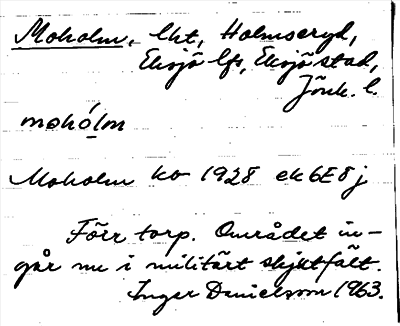 Moholm, lht, Holmseryd,
Eksjö lfs, Eksjö stad,
Jönk. l.
mohólm
Moholm kb 1928 ek 6E8j
Förr torp. Området in-
går nu i militärt skjutfält.
Inger Danielsson 1963.